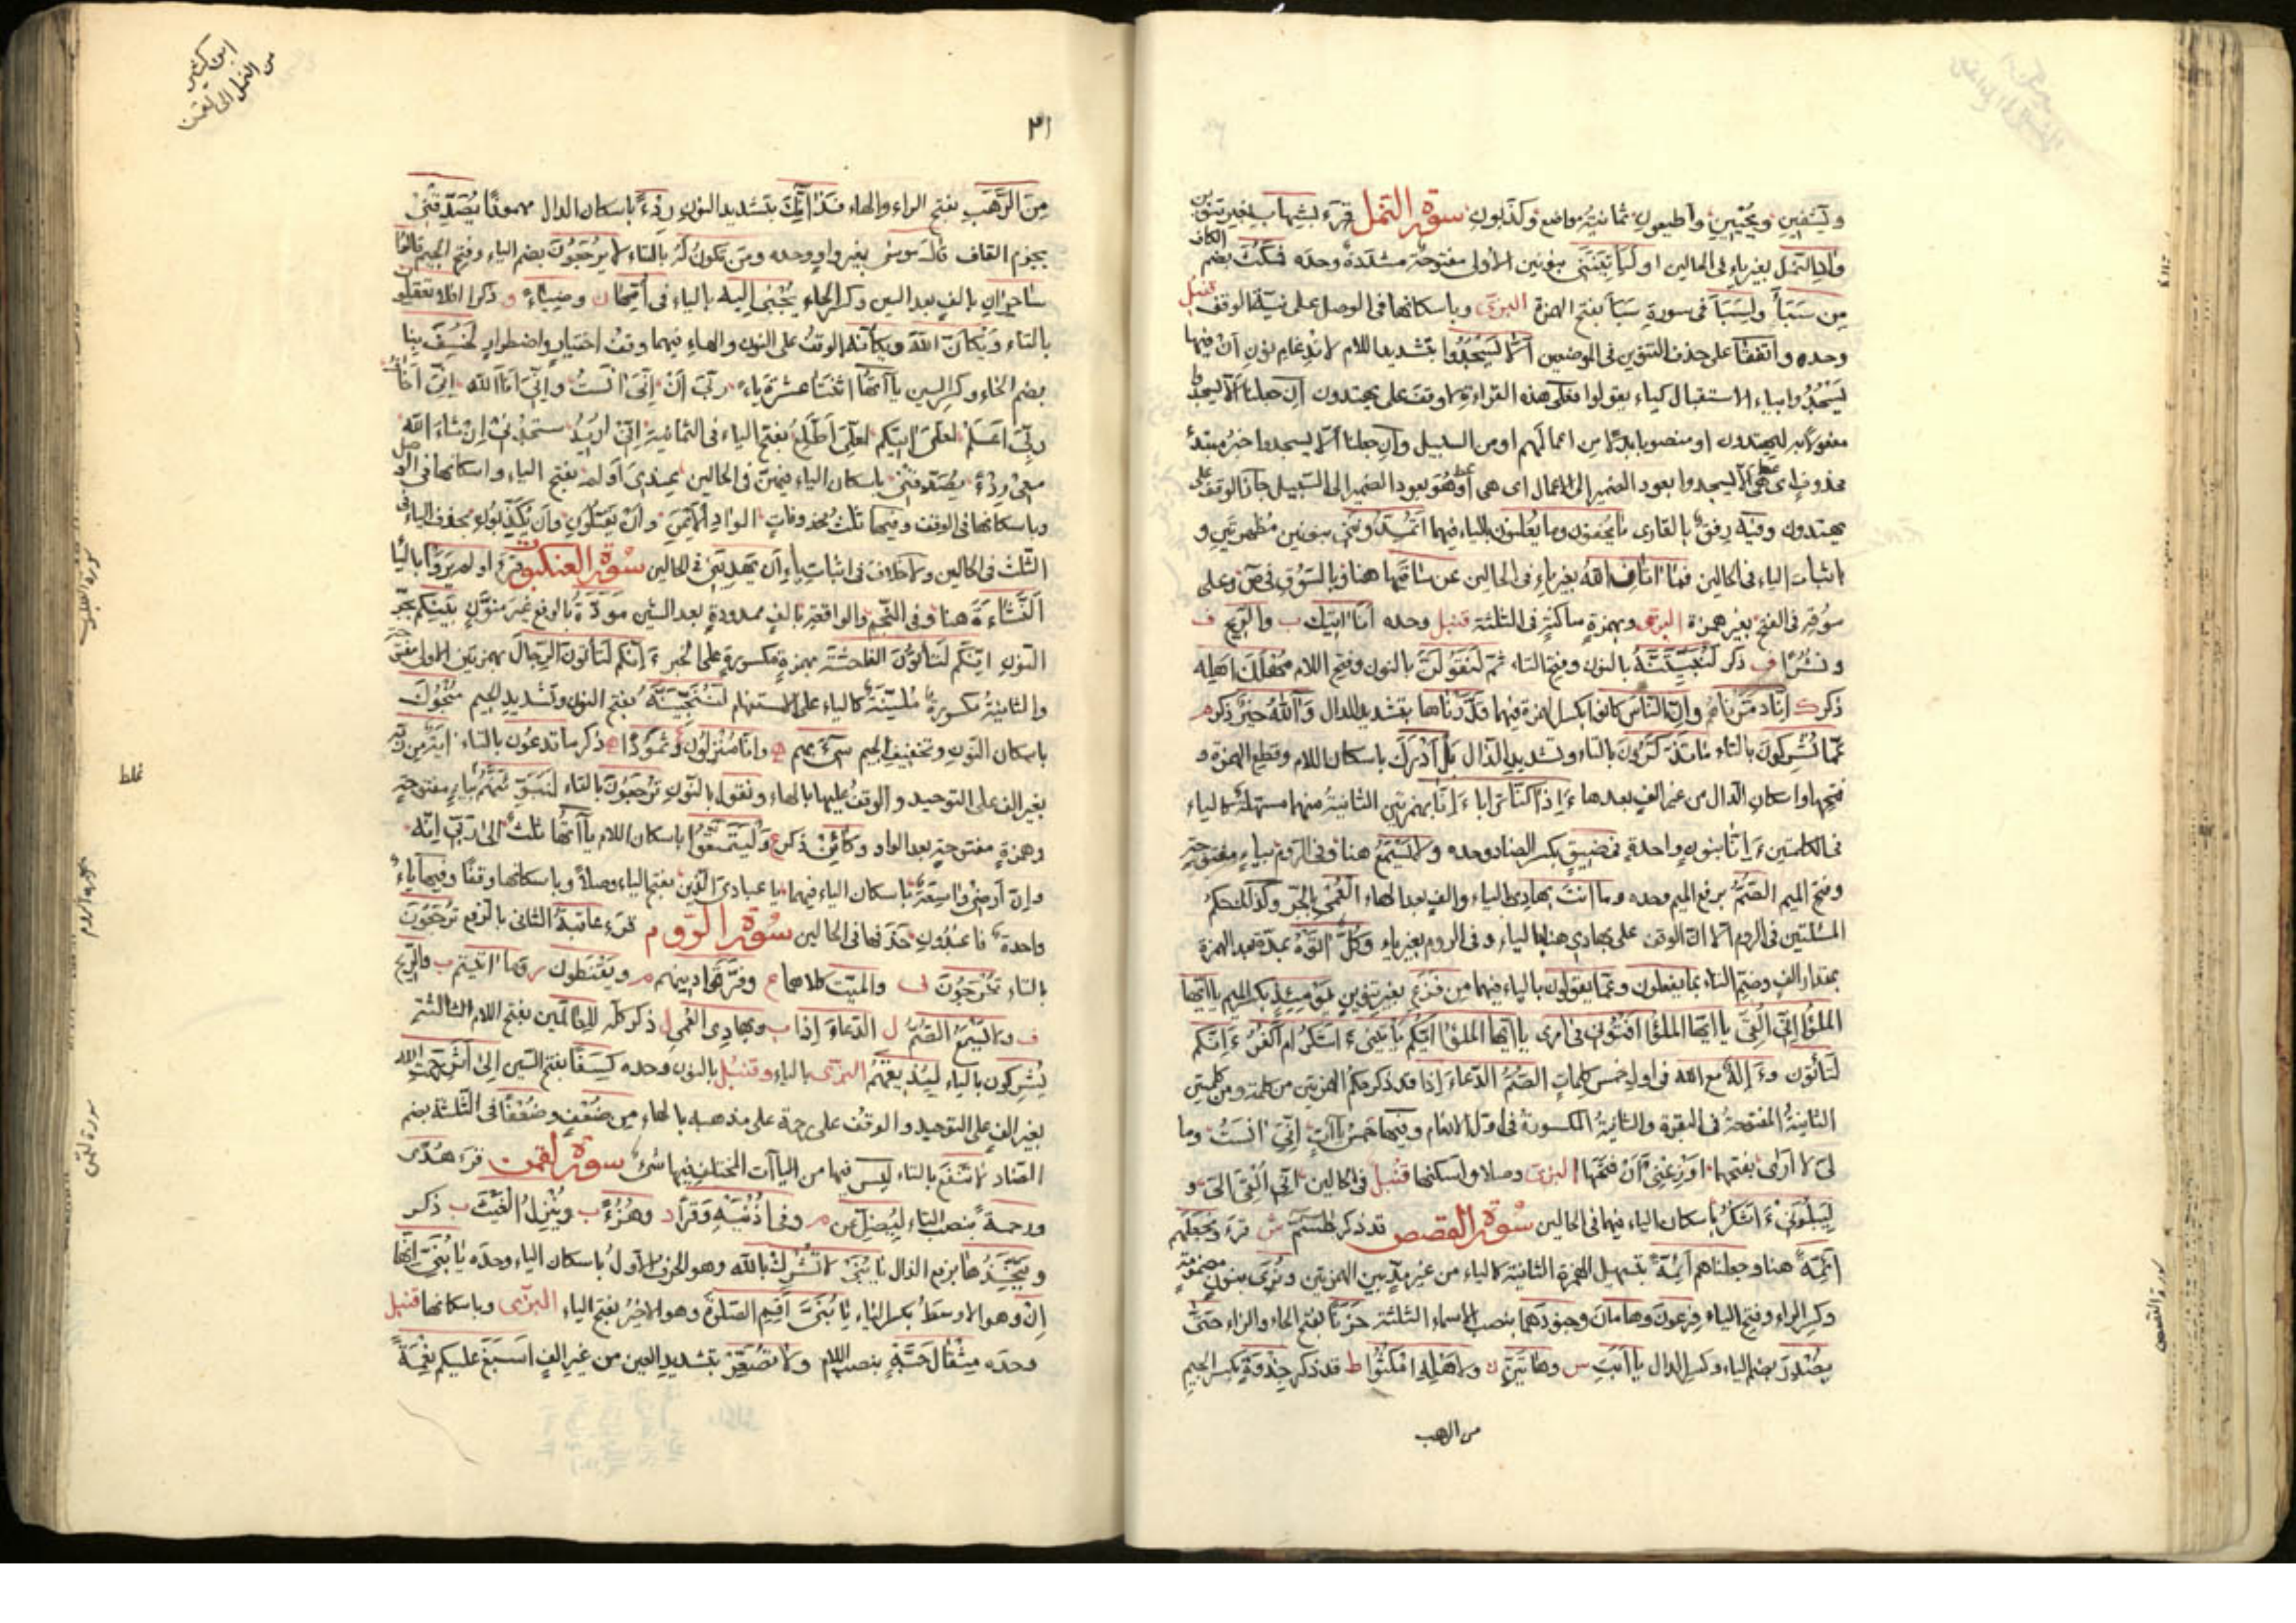 ويسقين ويحيين واطيعون ثمانية مواضع وكذبون سورة النمل قرء بشهاب بغير تنوين
واد النمل بغير ياء في الحالين او ليأتينني بنونين الاولى مفتوحة مشددة وحده فمكث بضم الكاف
من سبأ ولسبأ في سورة سبأ بفتح الهمزة البزي وباسكانها في الوصل على نية الوقف قنبل
وحده واتفقا على حذف التنوين في الموضعين الا يسجدوا بتشديد اللام لادغام نون ان فيها
يسجدوا بياء الاستقبال كياء يقولوا فعلى هذه القراءة لا وقف على يهتدون ان جعلنا الا يسجدوا
مفعولا به ليهتدون او منصوبا بدلا من اعمالهم او من السبيل وان جعلنا الا يسجدوا خبر مبتدء
محذوف اي هي الا يسجدوا بعود الضمير الى الاعمال اي هي او هو بعود الضمير الى السبيل جاز الوقف على
يهتدون وفيه رفق بالقارى ما يخفون وما يعلنون بالياء فيهما اتمدونني بنونين مظهرتين و
باثبات الياء في الحالين فما اتان الله بغير ياء في الحالين عن ساقيها هنا وبالسوق في ص وعلى
سوقه في الفتح بغير همزة البزي وبهمزة ساكنة في الثلثة قنبل وحده انا اتيك ب والريح ف
ونشرا ف ذكر لنبيتنه بالنون وفتح التاء ثم لنقولن بالنون وفتح اللام مهلك اهله
ذكر ك انا دمرناهم وان الناس كانوا بكسر الهمزة فيهما قدرناها بتشديد الدال والله خير ذكر م
عما تشركون بالتاء ما تذكرون بالتاء وتشديد الذال بل ادرك باسكان اللام وقطع الهمزة و
فتحها واسكان الدال من غير الف بعدها ءاذا كنا ترابا ءانا بهمزتين الثانية منهما مسهلة كالياء
في الكلمتين ءانا بنون واحدة في ضيق بكسر الضاد وحده ولا يسمع هنا وفي الروم بياء مفتوحة
وفتح الميم الصم برفع الميم وحده وما انت بهادي بالياء والف بعد الهاء العمي بالجر وكذلك حكم
المسئلتين في الروم الا ان الوقف على بهادي هنا بالياء وفي الروم بغير ياء وكل اتوه بمدة بعد الهمزة
بمقدار الف وضم التاء بما يفعلون وعما يقولون بالياء فيهما من فزع بغير تنوين يومئذ بكسر الميم يا ايها
الملؤا اني القي يا ايها الملؤا افتوني في امرى يا ايها الملؤا ايكم يأتيني ءاشكر ام اكفر ءانكم
لتأتون وءاله مع الله في اول خمس كلمات الصم الدعاء اذا قد ذكر حكم الهمزتين من كلمة ومن كلمتين
الثانية المفتوحة في البقرة والثانية المكسورة في اول الانعام وفيها خمس ياآت اني انست وما
لي لا ارى بفتحهما اوزعني ان فتحها البزي وصلا واسكنها قنبل في الحالين اني القي الي و
ليبلوني ءاشكر باسكان الياء فيهما في الحالين سورة القصص قد ذكر طسم ش قرء ونجعلهم
ائمة هنا وجعلناهم ائمة بتسهيل الهمزة الثانية كالياء من غير مد بين الهمزتين ونرى بنون مضمومة
وكسر الراء وفتح الياء فرعون وهامان وجنودهما بنصب الاسماء الثلثة حزنا بفتح الحاء والزاء حتى
يصدر بضم الياء وكسر الدال يا ابت س وهاتين ن ولاهله امكثوا ط قد ذكر جذوة بكسر الجيم
من الرهب
ابن كثير
من النمل الى لقمن
٣١
من الرهب بفتح الراء والهاء فذانك بتشديد النون ردءا باسكان الدال مهموزا يصدقني
بجزم القاف قال موسى بغير واو وحده ومن تكون له بالتاء لا يرجعون بضم الياء وفتح الجيم قالوا
ساحران بالف بعد السين وكسر الحاء يجبى اليه بالياء في امها ن وضياء و ذكرا افلا تعقلون
بالتاء ويكان الله ويكانه الوقف على النون والهاء فيهما وقف اختيار واضطرار لخسف بنا
بضم الخاء وكسر السين ياآتها اثنتا عشرة ياء ربي ان اني انست واني انا الله اني اخاف
ربي اعلم لعلي اتيكم لعلي اطلع بفتح الياء في الثمانية اني اريد ستجدني ان شاء الله
معي ردء يصدقني باسكان الياء فيهن في الحالين عندي اولم بفتح الياء واسكانها في الوصل
وباسكانها في الوقف وفيها ثلث محذوفات الواد الايمن وان يقتلون وان يكذبون بحذف الياء في
الثلث في الحالين ولا خلاف في اثبات ياء ان يهديني في الحالين سورة العنكبوت قرء اولم يروا بالياء
النشاءة هنا وفي النجم والواقعة بالف ممدودة بعد الشين مودة بالرفع غير منون بينكم بجر
النون انكم لتأتون الفاحشة بهمزة مكسورة على الخبر ءانكم لتأتون الرجال بهمزتين الاولى مفتوحة
والثانية مكسورة ملينة كالياء على الاستفهام لننجينه بفتح النون وتشديد الجيم منجوك
باسكان النون وتخفيف الجيم سيء بهم وانا منزلون وثمودا ذكر ما تدعون بالتاء اية من ربه
بغير الف على التوحيد والوقف عليها بالهاء ونقول بالنون ترجعون بالتاء لنبوئنهم بباء مفتوحة
وهمزة مفتوحة بعد الواو وكأين ذكر ع وليتمتعوا باسكان اللام ياآتها ثلث الى ربي انه
وان ارضي واسعة باسكان الياء فيهما يا عبادي الذين بفتح الياء وصلا وباسكانها وقفا وفيها ياء
واحدة فاعبدون حذفها في الحالين سورة الروم قرء عاقبة الثاني بالرفع ترجعون
بالتاء تخرجون ف والميت كلاهما ع وفرقوا دينهم م ويقنطون ر وما اتيتم ب والريح
ف ولا يسمع الصم ل الدعاء اذا ب وبهادي العمي ل ذكر كله للعالمين بفتح اللام الثالثة
يشركون بالياء ليذيقهم البزي بالياء وقنبل بالنون وحده كسفا بفتح السين الى اثر رحمت الله
بغير الف على التوحيد والوقف على رحمة على مذهبه بالهاء من ضعف وضعفا في الثلثة بضم
الضاد لا تنفع بالتاء ليس فيها من الياآت المختلف فيها شيء سورة لقمن قرء هدى
ورحمة بنصب التاء ليضل عن م وفي اذنيه وقرا د وهزءا ب وينزل الغيث ب ذكر
ويتخذها برفع الذال يا بني لا تشرك بالله وهو الحرف الاول باسكان الياء وحده يا بني انها
ان وهو الاوسط بكسر الياء يا بني اقم الصلوة وهو الاخير بفتح الياء البزي وباسكانها قنبل
وحده مثقال حبة بنصب اللام ولا تصعر بتشديد العين من غير الف اسبغ عليكم نعمة
غلط
سورة العنكبوت
سورة الروم
سورة لقمن
سورة القصص